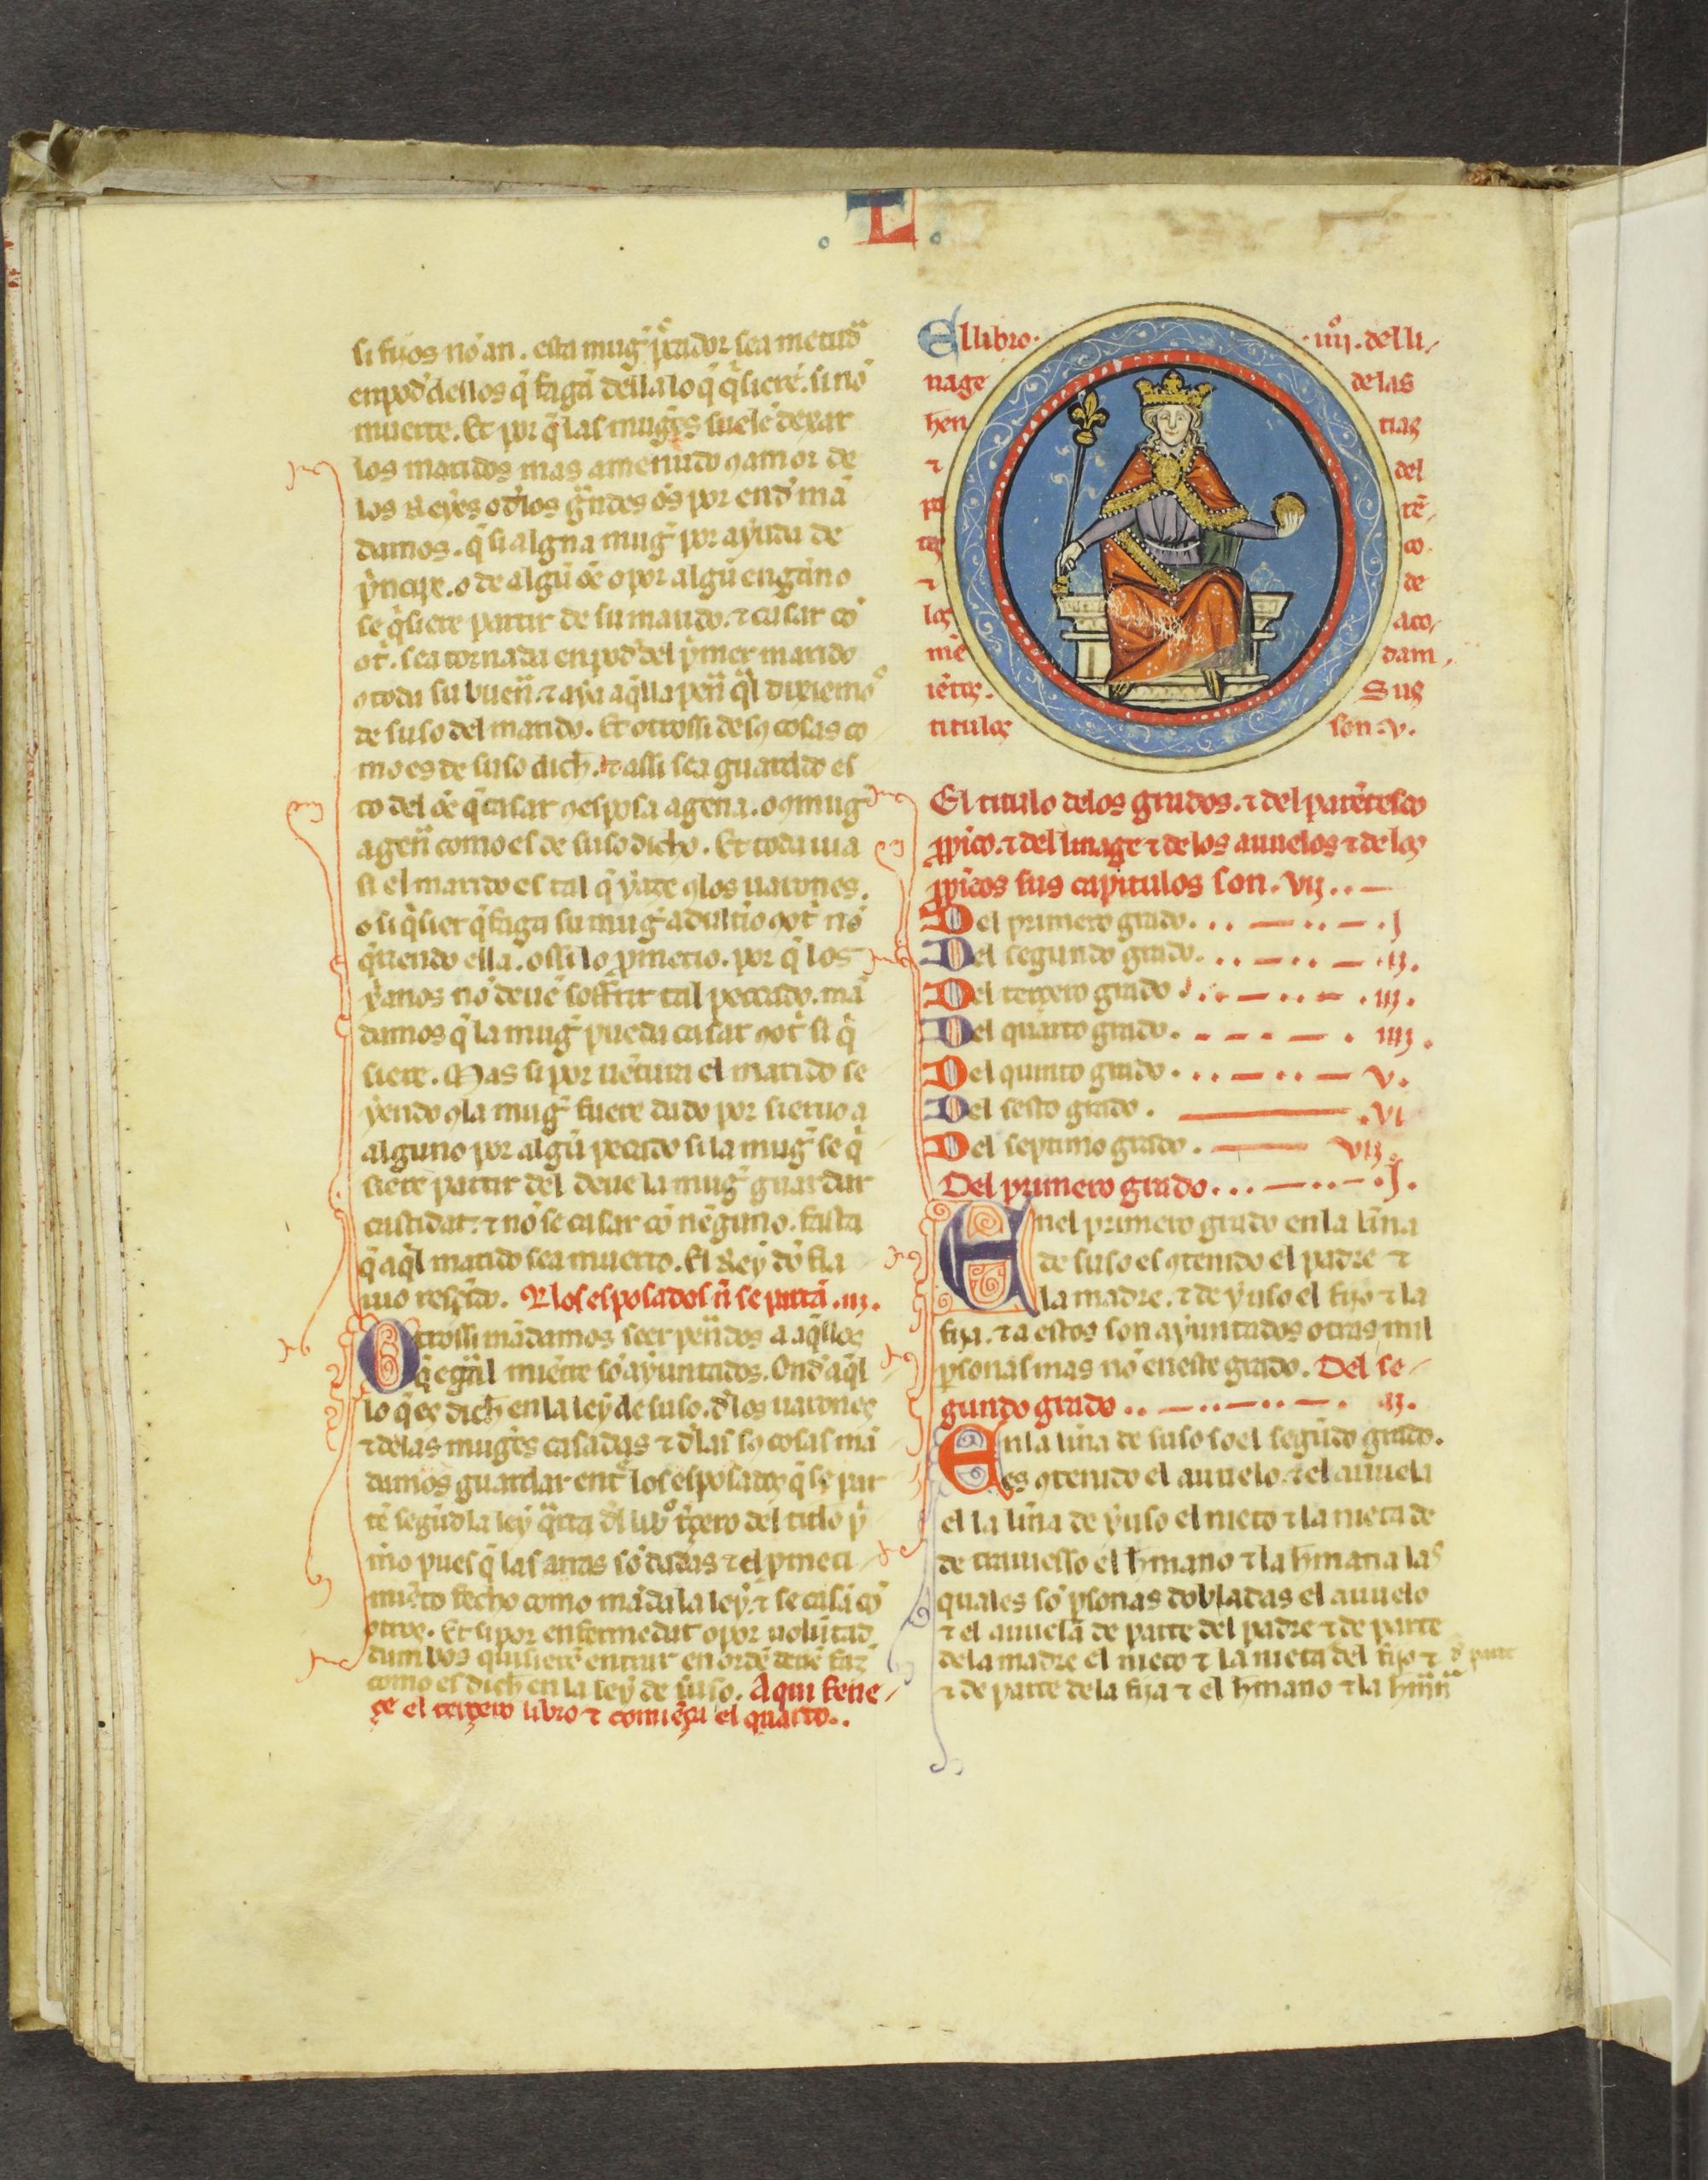 .L.
si fijos nõ an. esta mug̃ pecador sea metuda
en pod̃ dellos q̃ fagã della lo q̃ q̃sierẽ. si nõ
muerte. Et por q̃ las mugẽs suelẽ dexar
los maridos mas amenudo ꝯ amor de
los Reyes o dlos grãdes oẽs por end̃ mã
damos. q̃ si alguna mug̃ por ayuda de
p̃ncipe. o de algũ oẽ o por algũ enganno
se q̃siere partir de su marido. ⁊ casar cõ
ot̃. sea tornada en pod̃ del p̃mer marido
ꝯ toda su buen̄. ⁊ aya aq̃lla pen̄ q̃l dixiemoˢ
de suso del marido. Et otrossi de sꝯ cosas co
mo es de suso dich̃. ⁊ assi sea guardado es
to del oẽ q̃ casar ꝯ esposa agena. o ꝯ mug̃
agen̄ como es de suso dicho. Et toda uia
si el marido es tal q̃ yaze ꝯ los uarones.
o si q̃sier q̃ faga su mug̃ adult̃io ꝯ ot̃ nõ
q̃riendo ella. o ssi lo p̃metio. por q̃ los
x̃anos nõ deuẽ soffrir tal peccado. mã
damos q̃ la mug̃ pueda casar ꝯ ot̃ si q̃
siere. Mas si por uẽtura el marido se
yendo ꝯ la mug̃ fuere dado por sieruo a
alguno por algũ pecado si la mug̃ se q̃
siere partir del deue la mug̃ guardar
castidat. ⁊ nõ se casar cõ nẽguno. fasta
q̃ aq̃l marido sea muerto. El Rey dõ fla
uio resc̃ido. Q los esposados ñ se partã .iij.
Otrossi mãdamos seer pen̄dos a aq̃llos
q̃ egual muerte sõ ayuntados. Ond̃ aq̃l
lo q̃ es dich̃ en la ley de suso. dlos uarones
⁊ delas mugẽs casadas ⁊ dlas sꝯ cosas mã
damos guardar ent̃ los esposados q̃ se par
tẽ segũd la ley q̃rta dl libº t̃çero del titlo p̃
m̃o pues q̃ las arras sõ dadas ⁊ el p̃meti
miẽto fecho como mãda la ley. ⁊ se casã cõ
otros. Et si por enfermedat o por uolũtad
dambos quisierẽ entrar en ordẽ deuẽ faz̃
como es dich̃ en la ley de suso. Aqui fene
çe el terçero libro ⁊ comiẽça el quarto..
El libro. .iiijº. del li
nage de las
hen tias
⁊ del
pa rẽ
tes co.
⁊ de
los aco
mẽ dam
iẽtos. Sus
titulos son .v.
El titulo delos grados. ⁊ del parẽtesco
p̃pĩco. ⁊ del linage ⁊ de los auuelos ⁊ de los
p̃pĩcos sus capitulos son. vij..
Del primero grado. .j
Del segundo grado. .ij.
Del terçero grado .iij.
Del quarto grado. iiij.
Del quinto grado. v.
Del sesto grado. .vi
Del septimo grado. vij.
Del primero grado... .j.
Enel primero grado en la lĩna
de suso es ꝯtenido el padre ⁊
la madre. ⁊ de yuso el fijo ⁊ la
fija. ⁊ a estos son ayuntados otras mil
p̃sonas mas nõ en este grado. Del se
gundo grado .. .ij.
En la lĩna de suso so el segũdo grado.
es ꝯtenido el auuelo. ⁊ el auuela
el la lĩna de yuso el nieto ⁊ la nieta de
de trauiesso el h̃mano ⁊ la h̃mana las
quales sõ p̃sonas dobladas el auuelo
⁊ el auuela de parte del padre ⁊ de parte
dela madre el nieto ⁊ la nieta del fijo ⁊ d̃ parte
⁊ de parte dela fija ⁊ el h̃mano ⁊ la h̃man̄